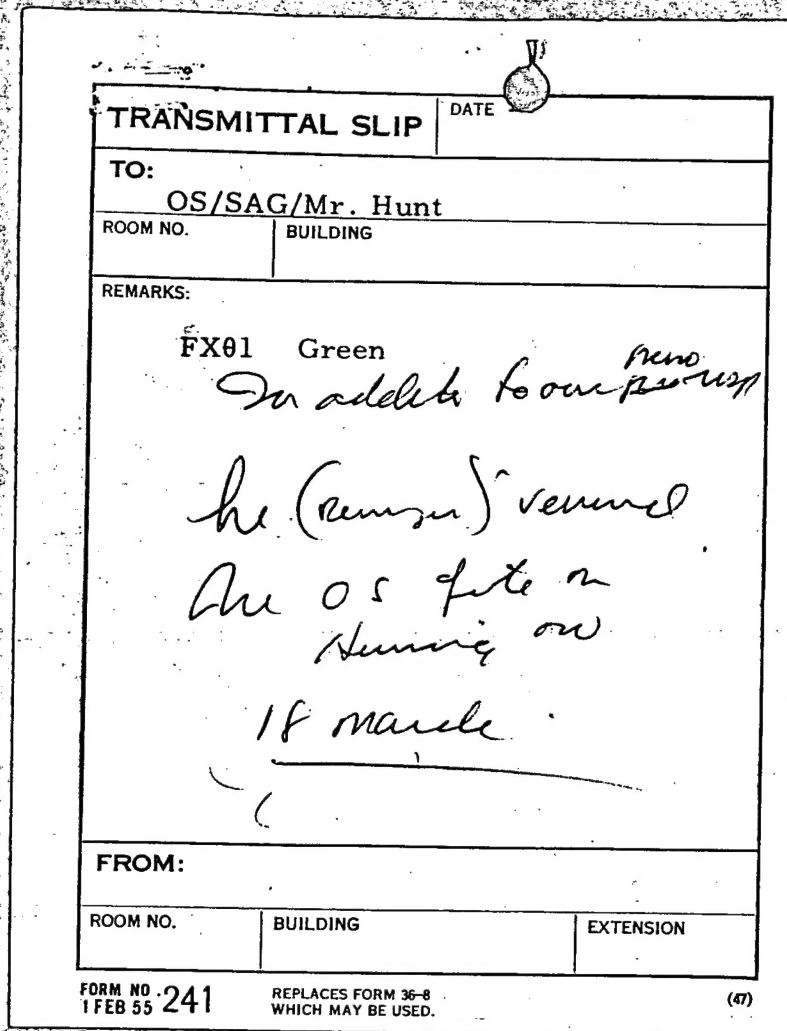 TRANSMITTAL SLIP
DATE
TO:
OS/SAG/Mr. Hunt
ROOM NO.
BUILDING
REMARKS:
FX01 Green
In addit to our
he ( ) 
the OS file on
on
18 March
FROM:
ROOM NO.
BUILDING
EXTENSION
FORM NO. 241
1 FEB 55
REPLACES FORM 36-8
WHICH MAY BE USED.
(47)